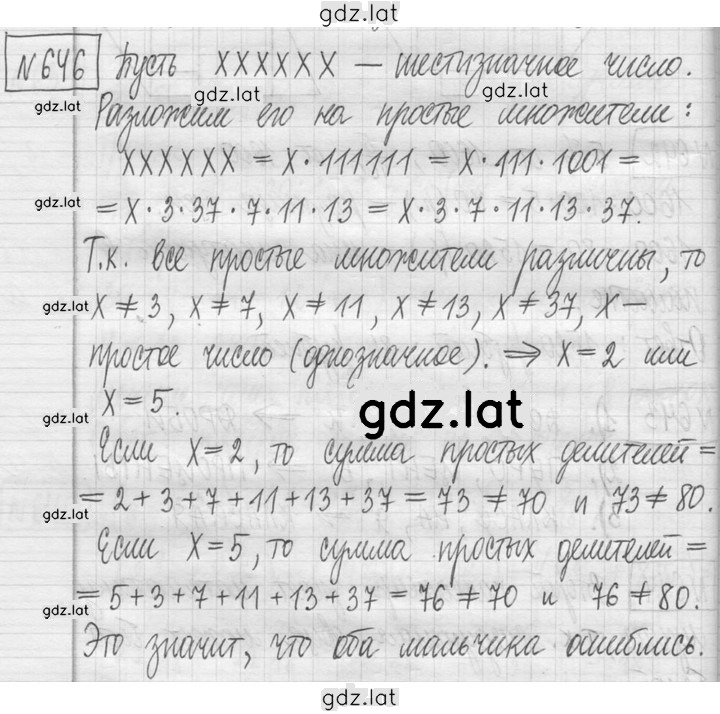 gdz.lat
№646 Пусть XXXXXX – шестизначное число.
gdz.lat gdz.lat
gdz.lat Разложим его на простые множители:
XXXXXX = X·111111 = X·111·1001 =
gdz.lat = X·3·37·7·11·13 = X·3·7·11·13·37.
Т.к. все простые множители различны, то
gdz.lat X ≠ 3, X ≠ 7, X ≠ 11, X ≠ 13, X ≠ 37, X –
простое число (однозначное). ⇒ X = 2 или
gdz.lat X = 5. gdz.lat
Если X = 2, то сумма простых делителей =
= 2 + 3 + 7 + 11 + 13 + 37 = 73 ≠ 70 и 73 ≠ 80.
gdz.lat
Если X = 5, то сумма простых делителей =
= 5 + 3 + 7 + 11 + 13 + 37 = 76 ≠ 70 и 76 ≠ 80.
gdz.lat
Это значит, что оба мальчика ошиблись.
gdz.lat